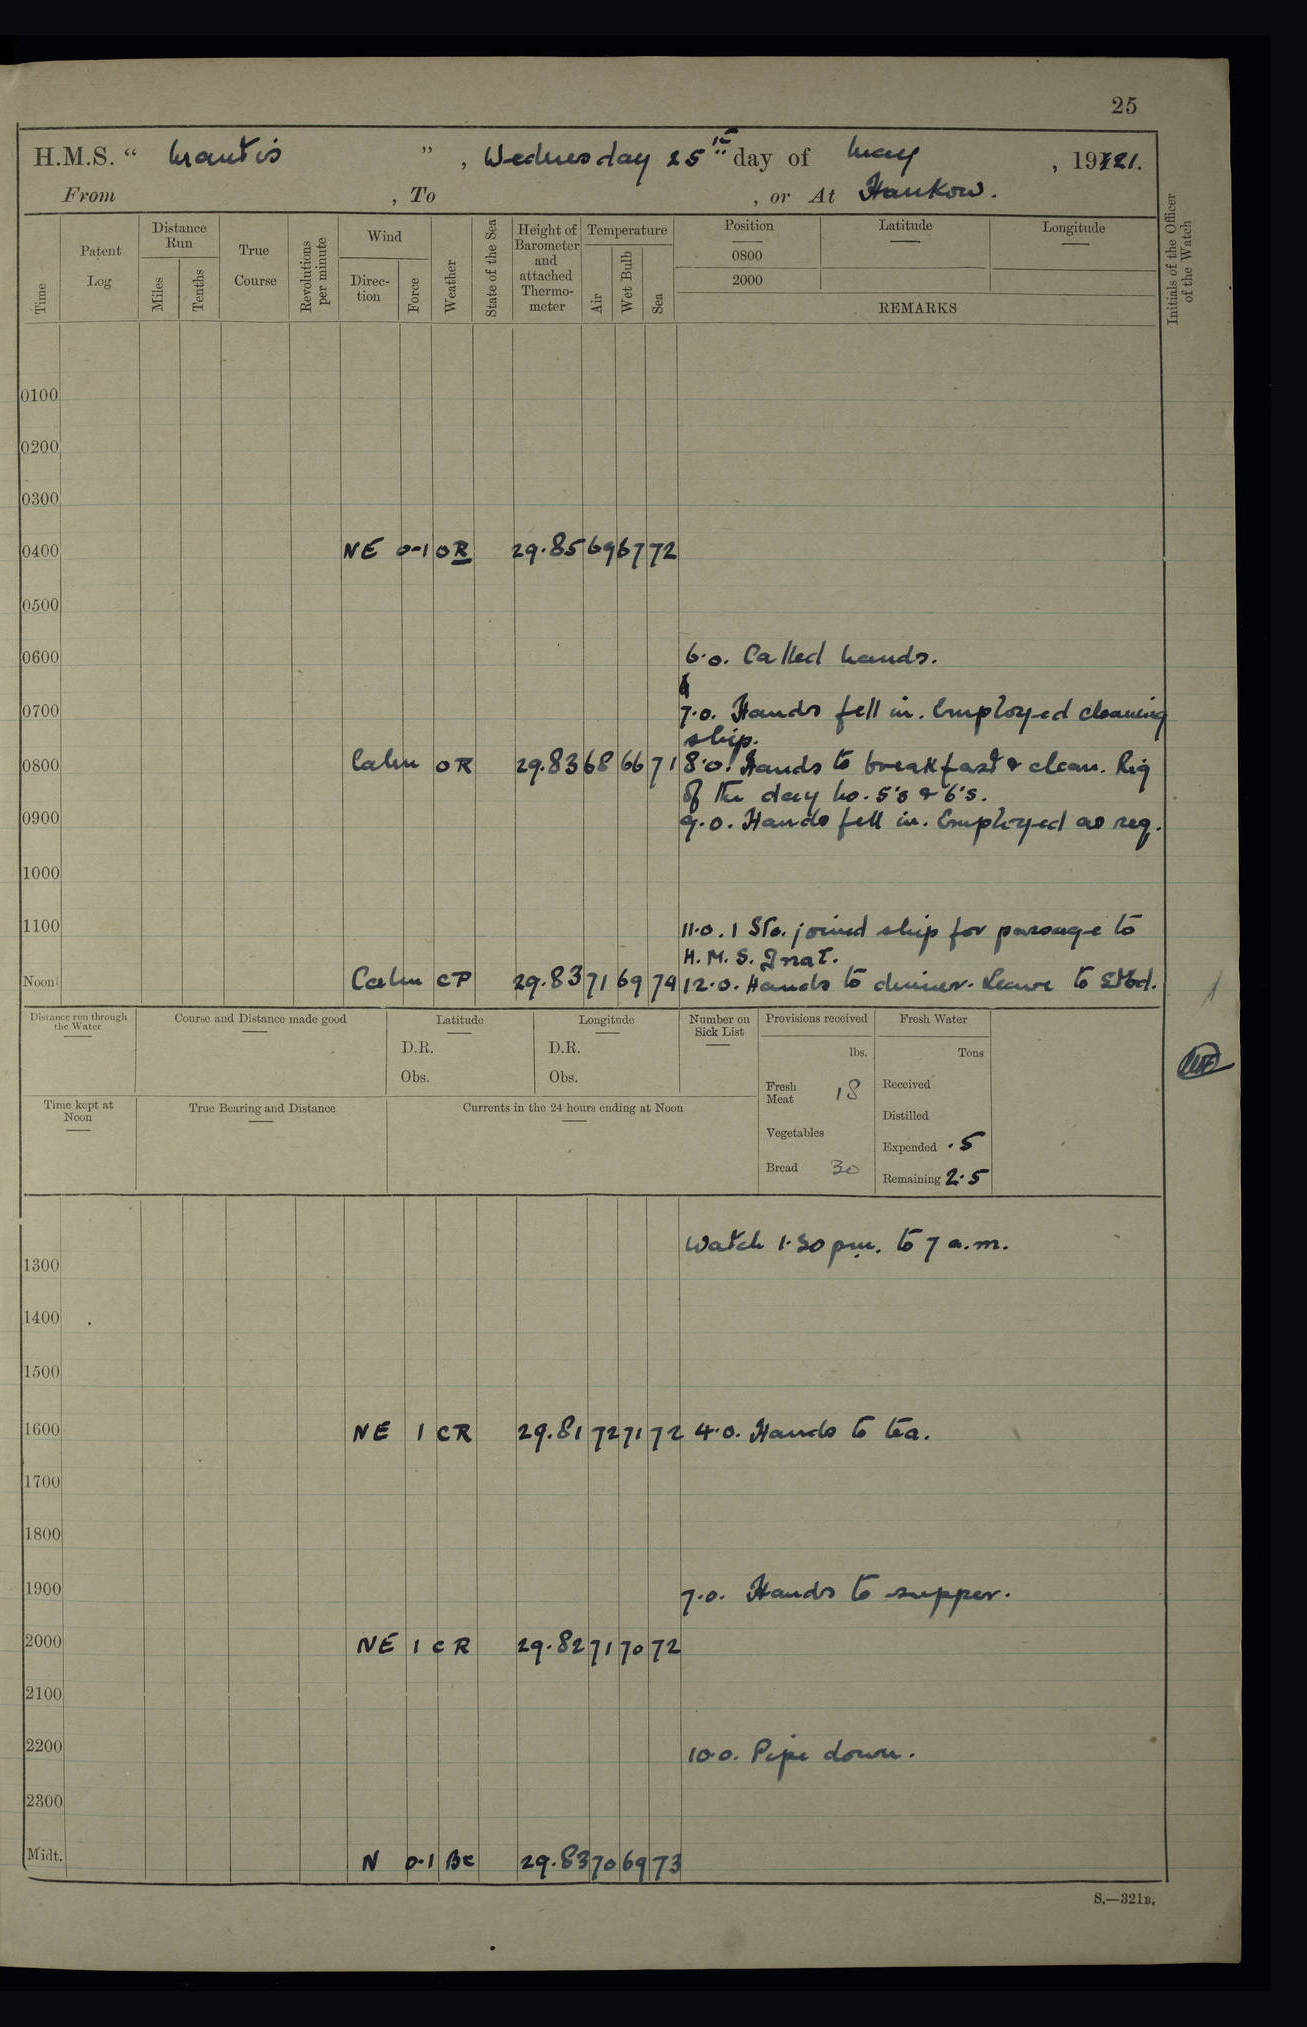 25
H.M.S. “ Mantis ” , Wednesday 25th day of May , 1921.
From , To , or At Hankow.
Time
Patent Log
Distance Run
Miles
Tenths
True Course
Revolutions per minute
Wind
Direc-tion
Force
Weather
State of the Sea
Height of Barometer and attached Thermo-meter
Temperature
Air
Wet Bulb
Sea
Position
0800
2000
Latitude
Longitude
REMARKS
Initials of the Officer of the Watch
0100
0200
0300
0400 NE 0-1 OR 29.85 69 67 72
0500
0600 6.0. Called hands.
0700 7.0. Hands fell in. Employed cleaning
ship.
0800 Calm OR 29.83 68 66 71 8.0. Hands to breakfast & clean. Rig
of the day No. 5's & 6's.
0900 9.0. Hands fell in. Employed as req.
1000
1100 11.0. 1 Sto. joined ship for passage to
H.M.S. Gnat.
Noon Calm CP 29.83 71 69 74 12.0. Hands to dinner. Leave to Stbd.
Distance run through the Water
Course and Distance made good
Latitude
D.R.
Obs.
Longitude
D.R.
Obs.
Number on Sick List
Provisions received
lbs.
Fresh Meat 18
Vegetables
Bread 30
Fresh Water
Tons
Received
Distilled
Expended .5
Remaining 2.5
Time kept at Noon
True Bearing and Distance
Currents in the 24 hours ending at Noon
Watch 1.30 pm. to 7 a.m.
1300
1400
1500
1600 NE 1 CR 29.81 72 71 72 4.0. Hands to tea.
1700
1800
1900 7.0. Hands to supper.
2000 NE 1 CR 29.82 71 70 72
2100
2200 10.0. Pipe down.
2300
Midt. N 0.1 BC 29.83 70 69 73
S.—321B.